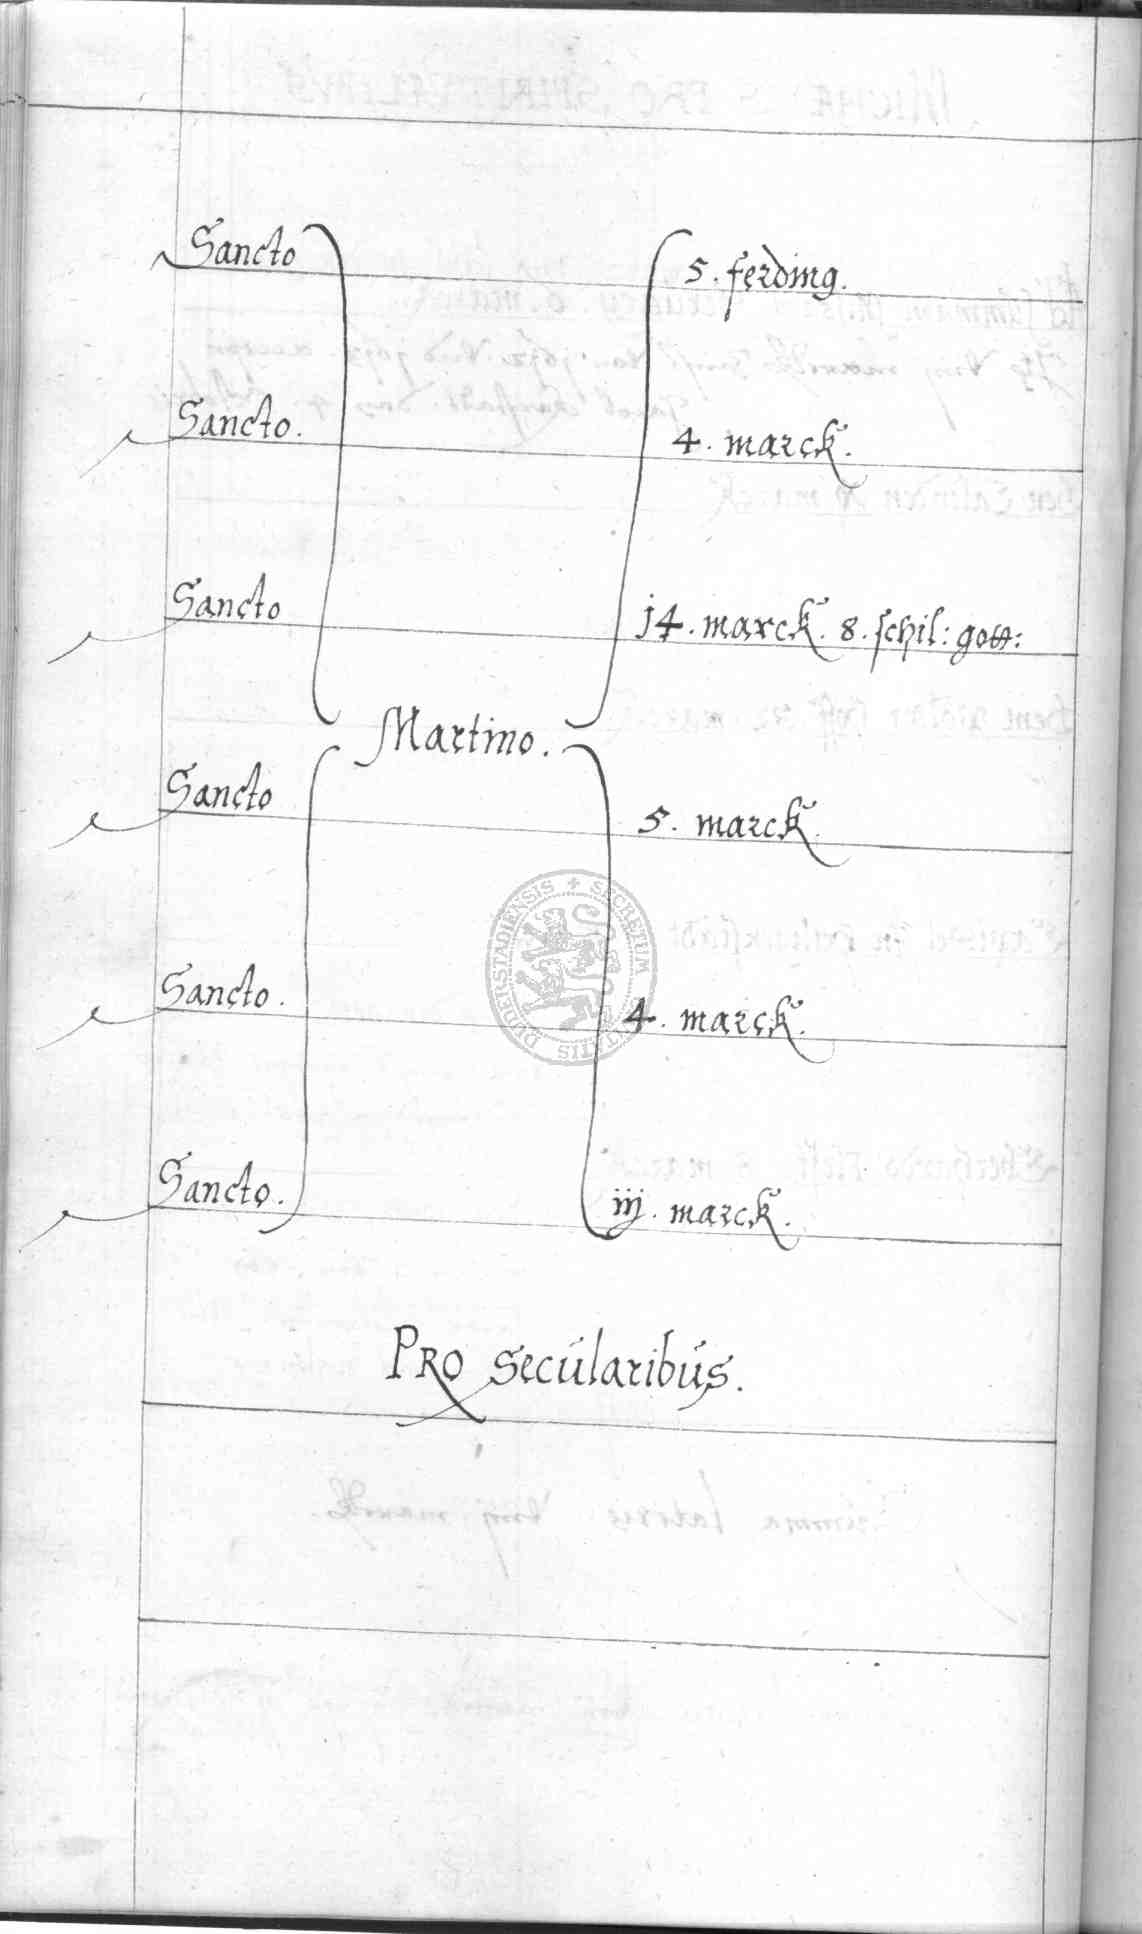 Sancto 5. ferding.
Sancto. 4. marck.
Sancto 14. marck. 8. schil: gott:
Martino.
Sancto 5. marck.
Sancto. 4. marck.
Sancto. iij. marck.
PRO Secularibus.
SECRETUM CIVITATIS DUDERSTADIENSIS